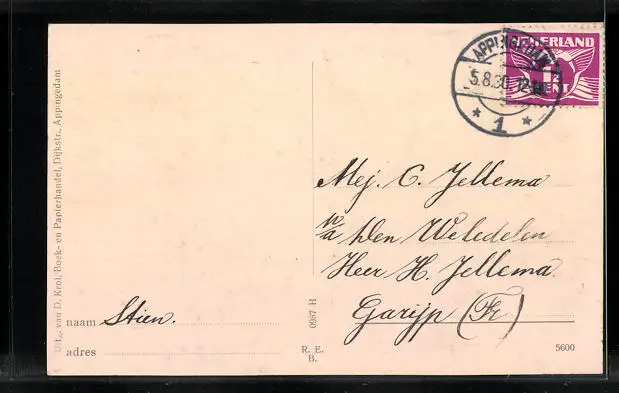 Uitg. van D. Krol, Boek- en Papierhandel, Dijkstr., Appingedam
naam Stien.
adres
0987 H
R. E.
B.
APPINGEDAM
5.8.30. 12-
* 1 *
NEDERLAND
CENT
Mej. C. Jellema
p/a Den Weledelen
Heer H. Jellema.
Garijp (Fr)
5600